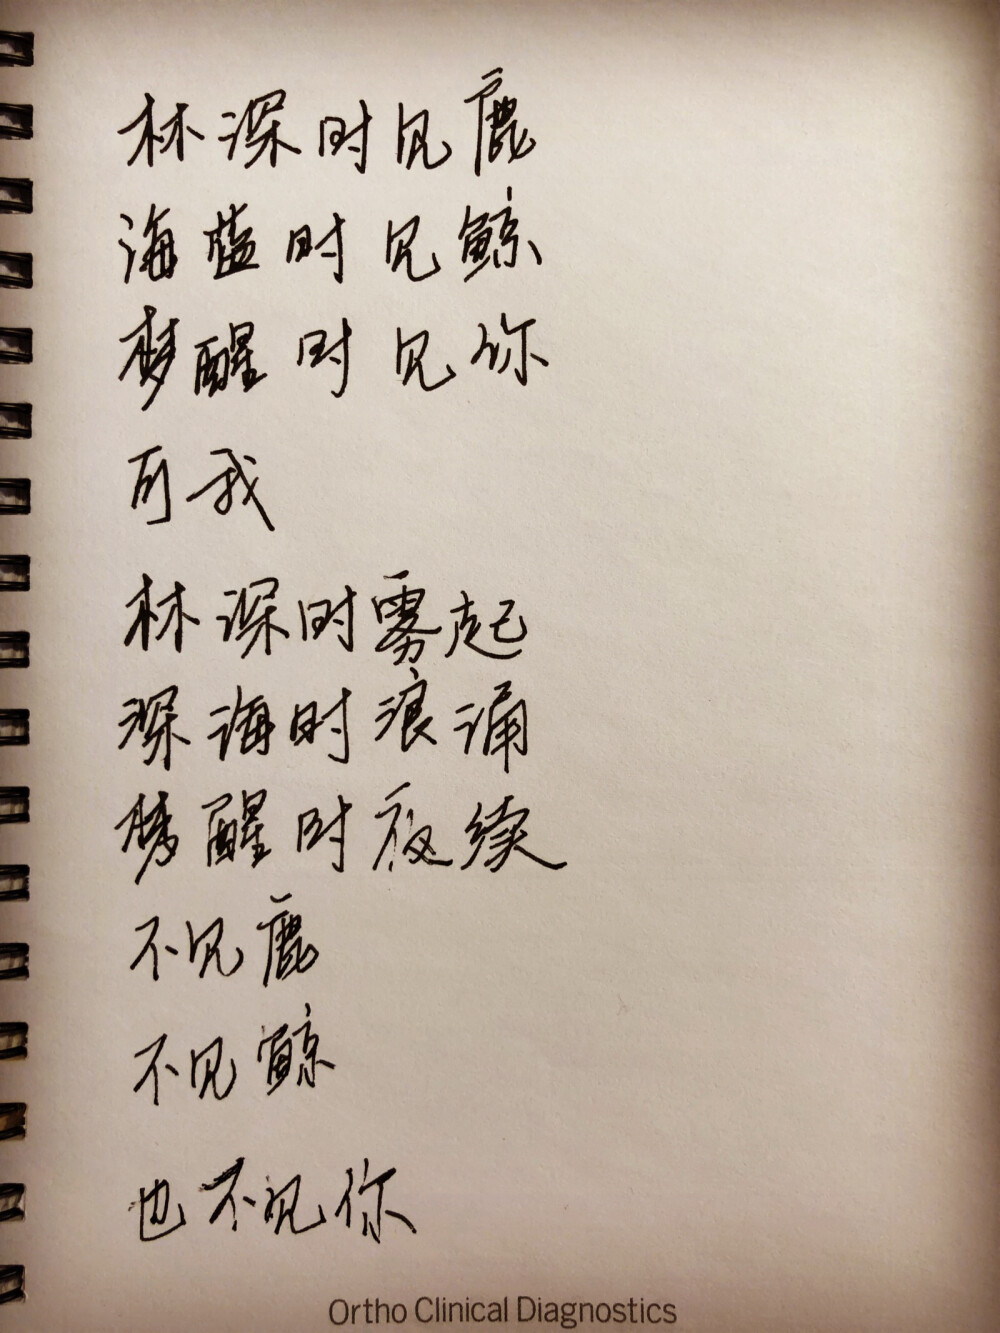 林深时见鹿
海蓝时见鲸
梦醒时见你
可我
林深时雾起
深海时浪涌
梦醒时夜续
不见鹿
不见鲸
也不见你
Ortho Clinical Diagnostics